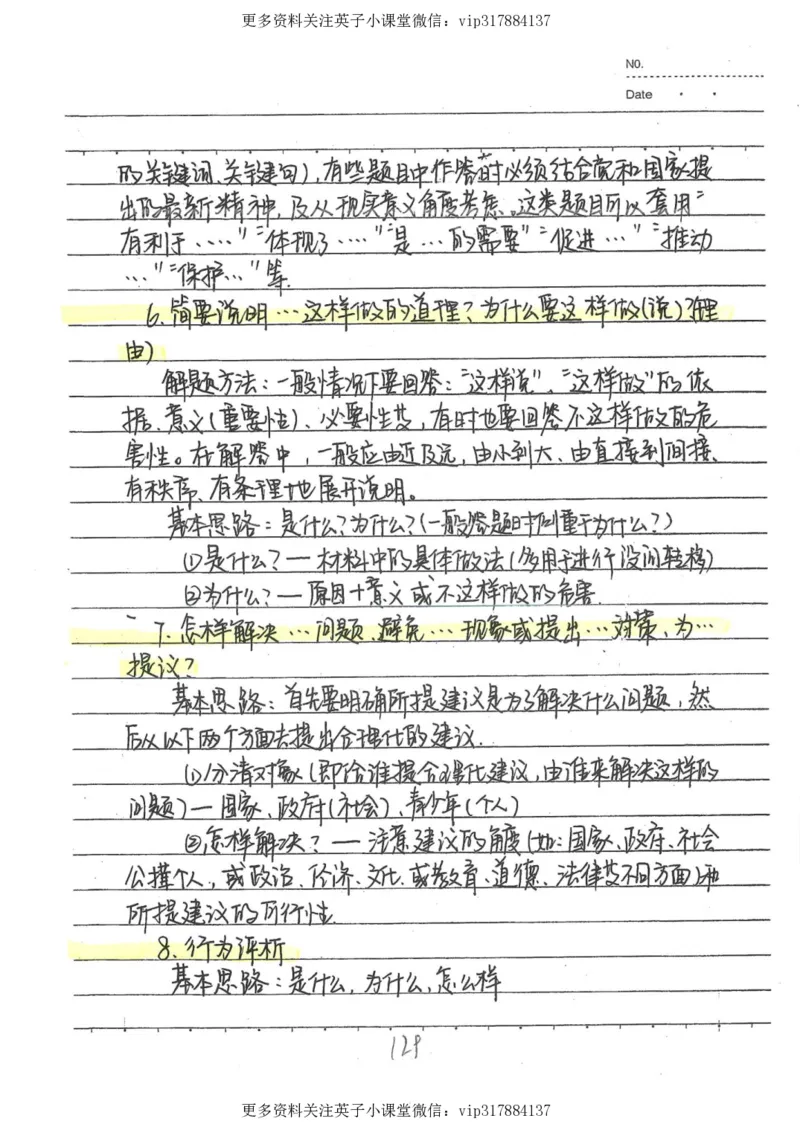 更多资料关注英子小课堂微信：vip317884137
NO.
Date
的关键词、关键句），有些题目中作答时必须结合党和国家提
出的最新精神，及从现实意义角度考虑。这类题目可以套用“
有利于……”“体现了……”“是…的需要”“促进…”“推动
…”“保护…”等.
6.简要说明…这样做的道理？为什么要这样做(说)？(理
由)
解题方法：一般情况下要回答：“这样说”、“这样做”的依
据、意义(重要性)、必要性等，有时也要回答不这样做的危
害性。在解答中，一般应由近及远，由小到大、由直接到间接、
有秩序、有条理地展开说明。
基本思路：是什么？为什么？(一般答题时侧重于为什么？)
①是什么？—材料中的具体做法(多用于进行设问转移)
②为什么？—原因+意义或不这样做的危害.
7.怎样解决…问题、避免…现象或提出…对策、为…
提议？
基本思路：首先要明确所提建议是为了解决什么问题，然
后从以下两个方面去提出合理化的建议.
①分清对象(即给谁提合理化建议，由谁来解决这样的
问题)—国家、政府(社会)、青少年(个人)
②怎样解决？—注意建议的角度(如：国家、政府、社会
公揰个人，或政治、经济、文化、或教育、道德、法律等不同方面)和
所提建议的可行性.
8.行为评析
基本思路：是什么，为什么，怎么样
129
更多资料关注英子小课堂微信：vip317884137